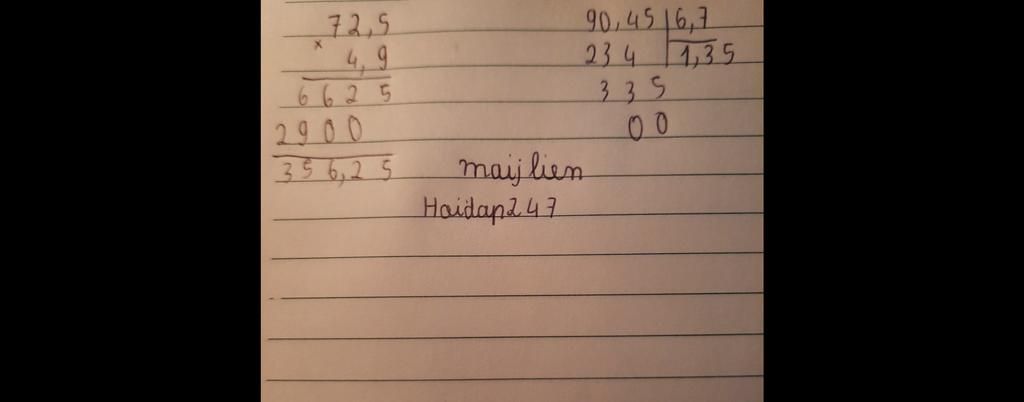 72,5
×
4,9
6625
2900
356,25
90,45 6,7
234 1,35
335
00
maijlien
Hoidap247